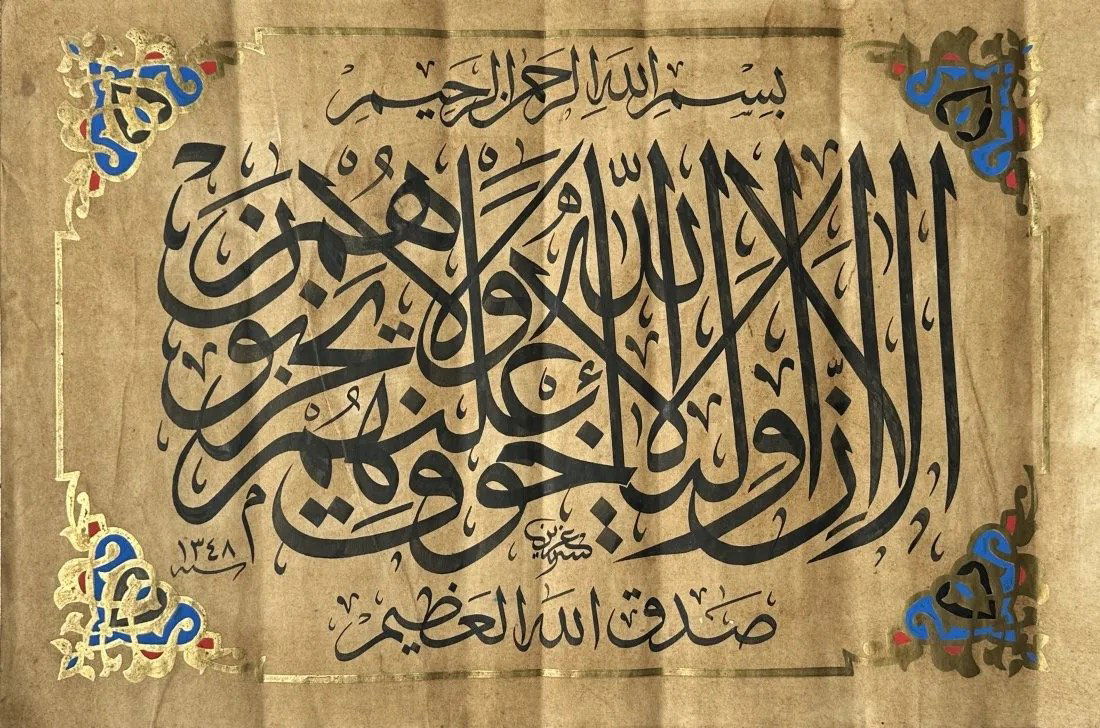 بِسْمِ اللهِ الرَّحْمٰنِ الرَّحِيمِ
اَلَا اِنَّ اَوْلِيَاءَ اللّٰهِ لَا خَوْفٌ عَلَيْهِمْ وَلَا هُمْ يَحْزَنُونَ
سنة ١٣٤٨
صدق الله العظيم